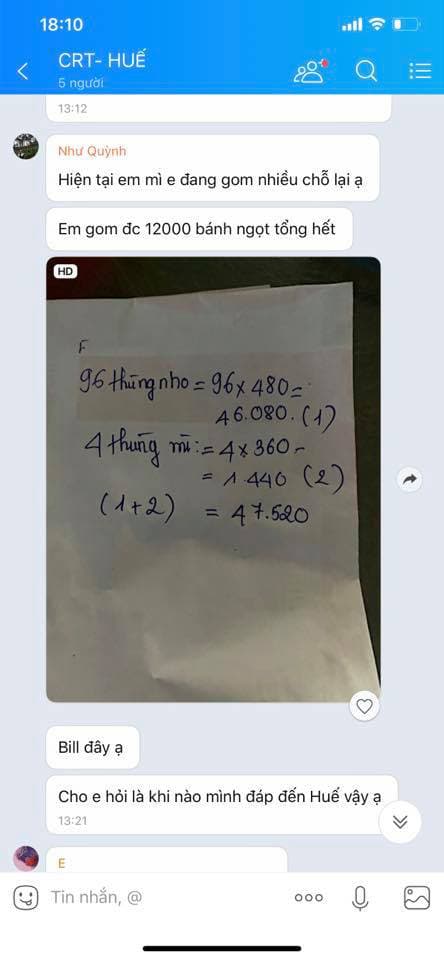 18:10
CRT- HUẾ
5 người
13:12
Như Quỳnh
Hiện tại em mì e đang gom nhiều chỗ lại ạ
Em gom đc 12000 bánh ngọt tổng hết
HD
F
96 thùng nho = 96 x 480 =
46.080. (1)
4 thùng mì: = 4 x 360 -
= 1.440 (2)
(1+2) = 47.520
Bill đây ạ
Cho e hỏi là khi nào mình đáp đến Huế vậy ạ
13:21
E
Tin nhắn, @